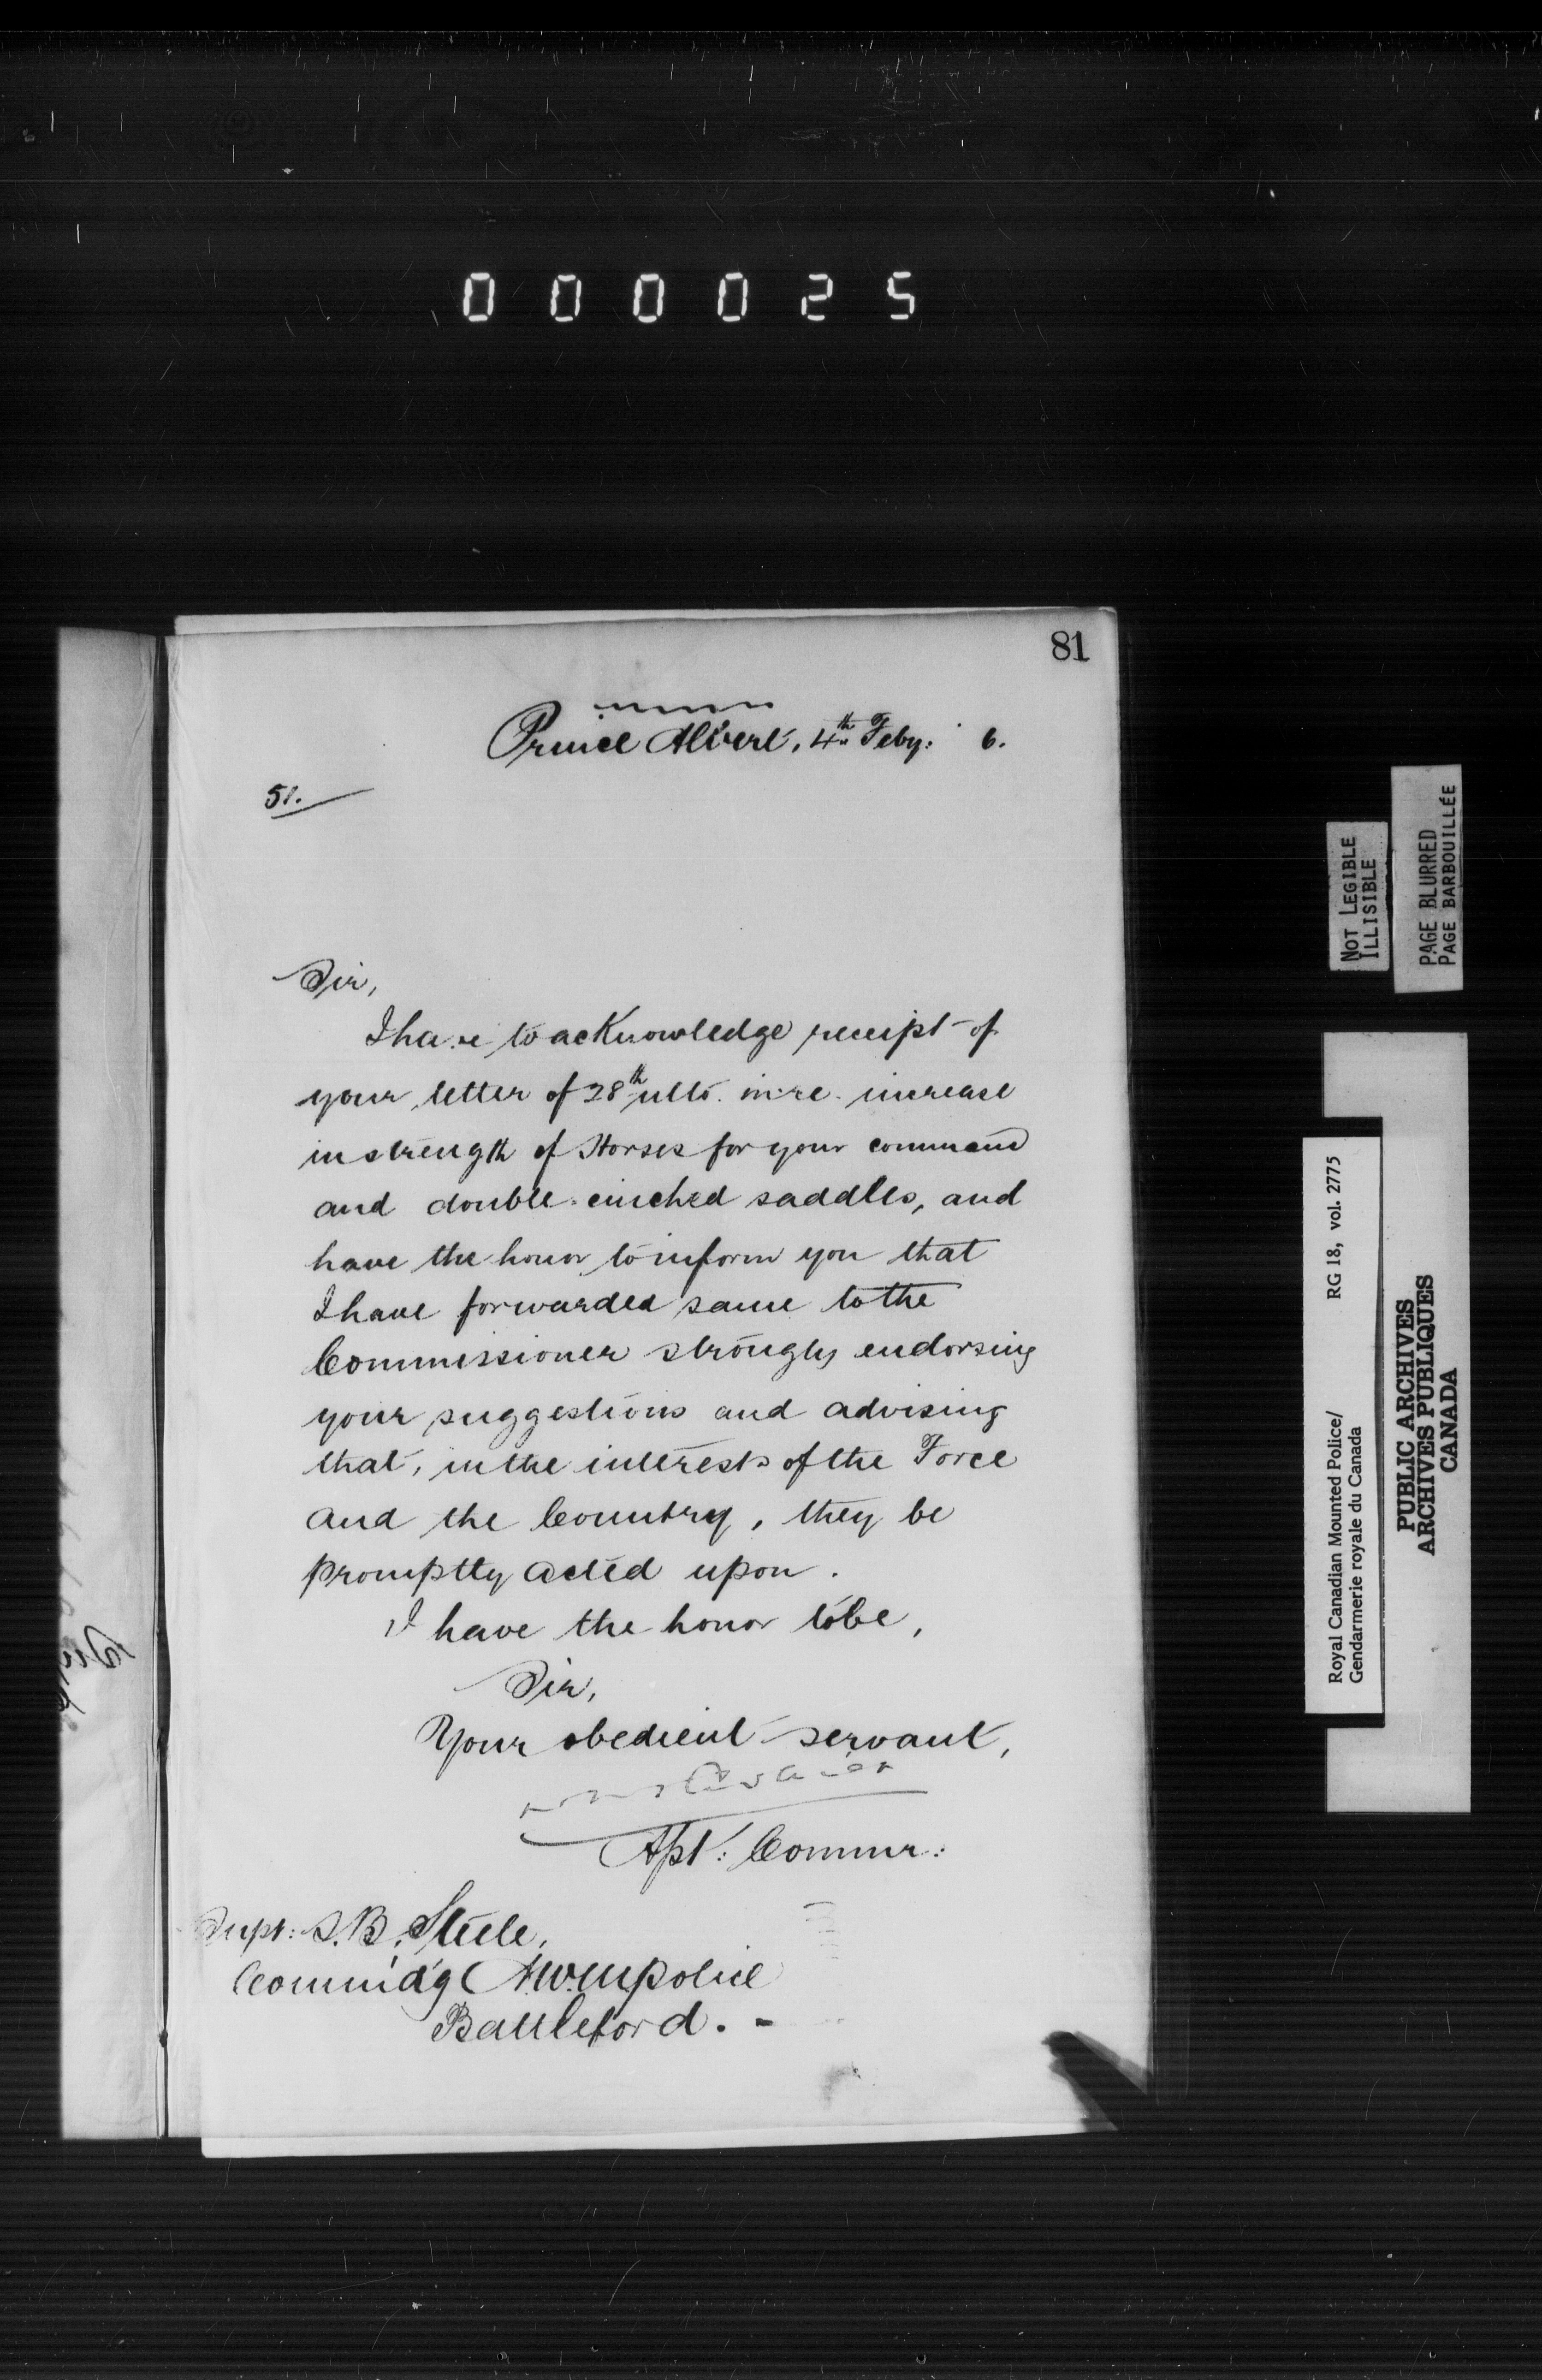 000025
81
Prince Albert, 4th Feby: 6.
51.
Sir,
I have to acknowledge receipt of
your letter of 28th ulto. in re. increase
in strength of Horses for your command
and double cinched saddles, and
have the honor to inform you that
I have forwarded same to the
Commissioner strongly endorsing
your suggestions and advising
that, in the interests of the Force
and the Country, they be
promptly acted upon.
I have the honor to be,
Sir,
Your obedient servant,
Asst: Commr:
Supt: S.B. Steele,
Commd'g N.W.M police
Battleford. -
NOT LEGIBLE
ILLISIBLE
PAGE BLURRED
PAGE BARBOUILLÉE
Royal Canadian Mounted Police/
Gendarmerie royale du Canada
RG 18, vol. 2775
PUBLIC ARCHIVES
ARCHIVES PUBLIQUES
CANADA